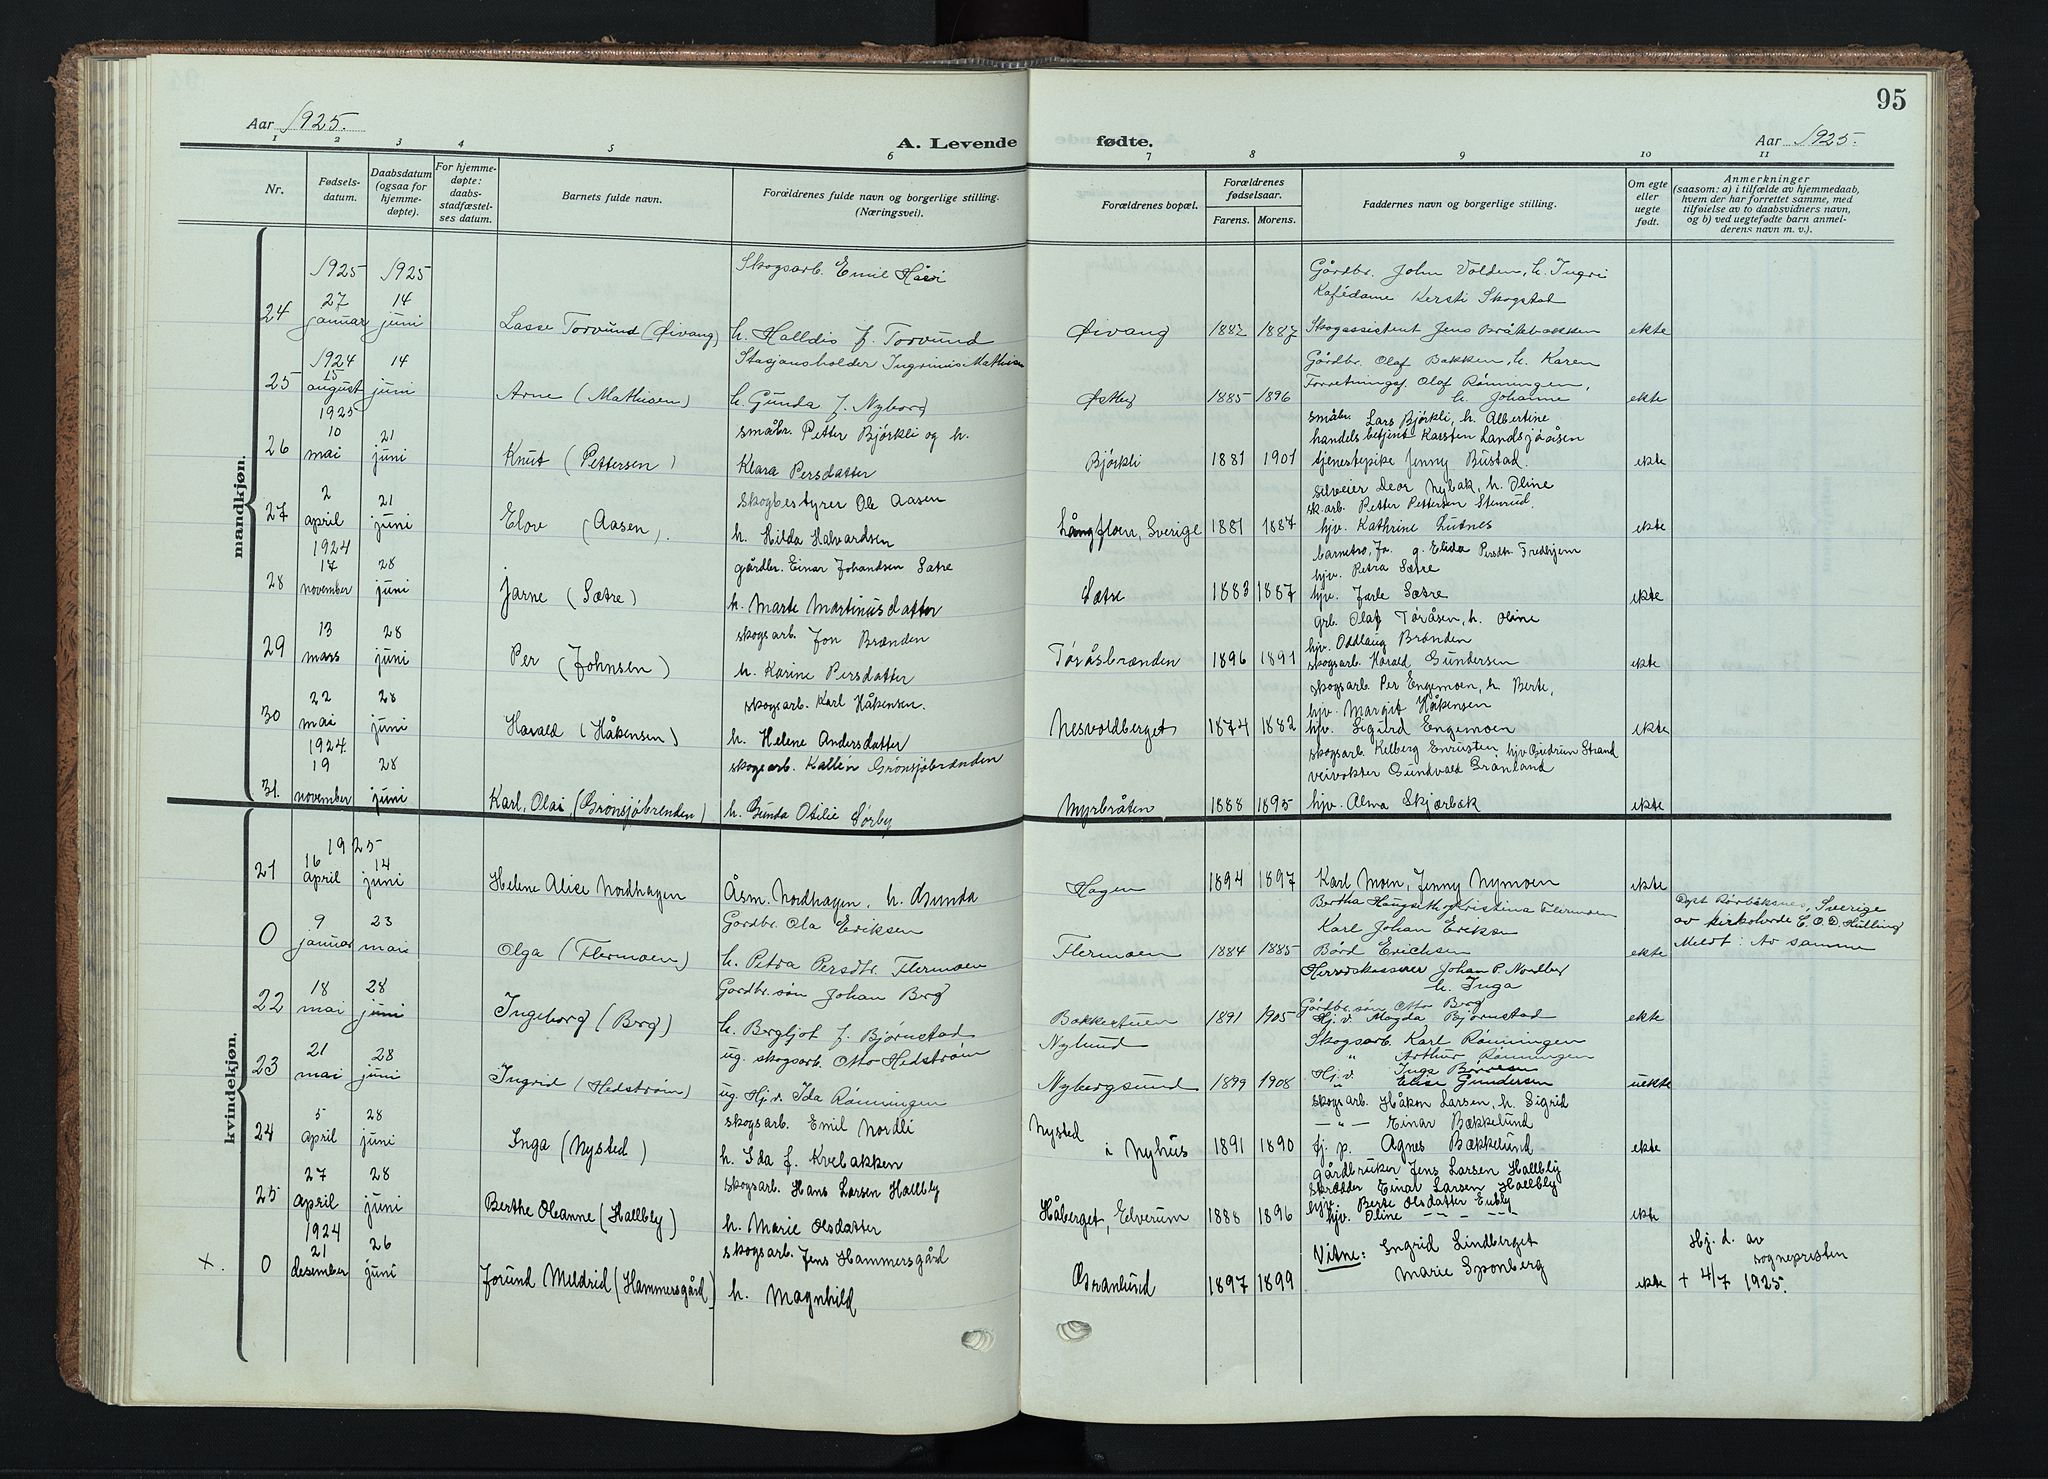 95
Aar 1925.
A. Levende fødte.
Aar 1925.
1 2 3 4 5 6 7 8 9 10 11
Nr.
Fødsels-
datum.
Daabsdatum
(ogsaa for
hjemme-
døpte).
For hjemme-
døpte:
daabs-
stadfæstel-
ses datum.
Barnets fulde navn.
Forældrenes fulde navn og borgerlige stilling.
(Næringsvei).
Forældrenes bopæl.
Forældrenes
fødselsaar.
Farens. Morens.
Faddernes navn og borgerlige stilling.
Om egte
eller
uegte
født.
Anmerkninger
(saasom: a) i tilfælde av hjemmedaab,
hvem der har forrettet samme, med
tilføielse av to daabsvidners navn,
og b) ved uegtefødte barn anmel-
derens navn m. v.).
mandkjøn.
1925 1925 Skogsarb. Emil Gårdbr. John Volden, h. Ingri
27 14 Kafédame Kersti Skogstad
24 januar juni Lasse Torvund (Øivang) h. Halldis f. Torvund Øivang 1882 1887 Skogassistent Jens Bråtebækken ekte
1924 14 Stasjonsholder Ingrinius Mathisen Gårdbr. Olaf Bakken, h. Karen
15 Forretningsf. Olaf Rønningen,
25 august juni Arne (Mathisen) h. Gunda f. Nyborg Østby 1885 1896 h. Johanne ekte
1925 småbr. Lars Bjørkli, h. Albertine
10 21 småbr. Petter Bjørkli og h. handelsbetjent Karsten Landsjøåsen
26 mai juni Knut (Pettersen) Klara Persdatter Bjørkli 1881 1901 tjenestepike Jenny Bustad. ekte
2 21 skogbestyrer Ole Aasen h. Oline
sk.arb. Petter Pettersen Stenrud.
27 april juni Elov (Aasen). h. Hilda Halvardsen Långfloen, Sverige 1881 1887 hjv. Kathrine Lutnes ekte
1924 Elida Persdtr. Fredhjem
17 28 gårdbr. Einar Johandsen Sætre hjv. Petra Sætre
28 november juni Jarne (Sætre) h. Marte Martinusdatter Sætre 1883 1887 hjv. Jarle Sætre ekte
13 28 skogsarb. Jon Brænden grb. Olaf Tøråsen, h. Oline
hjv. Oddlaug Brånden
29 mars juni Per (Johnsen) h. Karine Persdatter Tøråsbrænden 1896 1891 skogsarb. Harald Gundersen ekte
22 28 skogsarb. Karl Håkensen. skogsarb Per Engemoen, h. Berte,
hjv. Margit Håkensen
30 mai juni Harald (Håkensen) h. Helene Andersdatter Nesvoldberget 1874 1882 hjv. Sigurd Engemoen ekte
1924. skogsarb. Grönsjöbrænden skogsarb Kelberg Enrusten, hjv Gudrun Strand
19 28 veivokter Gundvald Grånland
31. november juni Karl, Olai, (Grönsjöbrenden) h. Gunda Otilie Sørby Myrbråten 1888 1895 hjv. Alma Skjærbæk ekte
kvindekjøn.
1925
16 14
21 april juni Helene Alice Nordhagen Åsm. Nordhagen, h. Gunda Hagen 1894 1897 Karl Moen, Jenny Nymoen ekte
9 23 Gardbr. Ola Eriksen Bertha Haugseth, Kristina Flermoen
Karl Johan Eriksen
0 januar mai Olga (Flermoen) h. Petra Persdtr. Flermoen Flermoen 1884 1885 Bård Erichsen ekte
Døpt Sverige
av kirkoherde C. O. D. Hülling
Meldt: Av samme
18 28 Gardbr. søn Johan Berg Herredskasserer Johan P. Nordberg
h. Inga
22 mai juni Ingeborg (Berg) h. Bergljot f. Bjørnstad Bakkestuen 1891 1905 Gårdbr. søn Otto Berg
Hj.v. Magda Bjørnstad ekte
21 28 ug. skogsarb. Otto Hedstrøm Nylund Skogsarb. Karl Rønningen
" Arthur Rønningen
23 mai juni Ingrid (Hedstrøm) ug. Hj.v. Ida Rønningen Nybergsund 1899 1908 Hj.v. Inga
" Elise Gundersen uekte
5 28 skogsarb. Emil Nordli Nysted skogsarb. Håkon Larsen, h. Sigrid
— " — Einar Bækkelund
24 april juni Inga (Nysted) h. Ida f. Kvebakken i Nyhus 1891 1890 tj. p. Agnes Bækkelund ekte
27 28 skogsarb. Hans Larsen Hallbly gårdbruker Jens Larsen Hallbly
skrædder Einar Larsen Hallbly
25 april juni Berthe Oleanne (Hallbly) h. Marie Olsdatter Håberget, Elverum 1888 1896 hjv. Berte Olsdatter Enkly
hjv. Oline — — — ekte
1924
21 26 skogsarb. Jens Hammersgård Vitne: Ingrid Lindberget
Marie Sponberg
x. 0 desember juni Jorund Meldrid (Hammersgård) h. Magnhild Granlund 1897 1899 ekte
Hj. d. av
sognepresten
+ 4/7 1925.